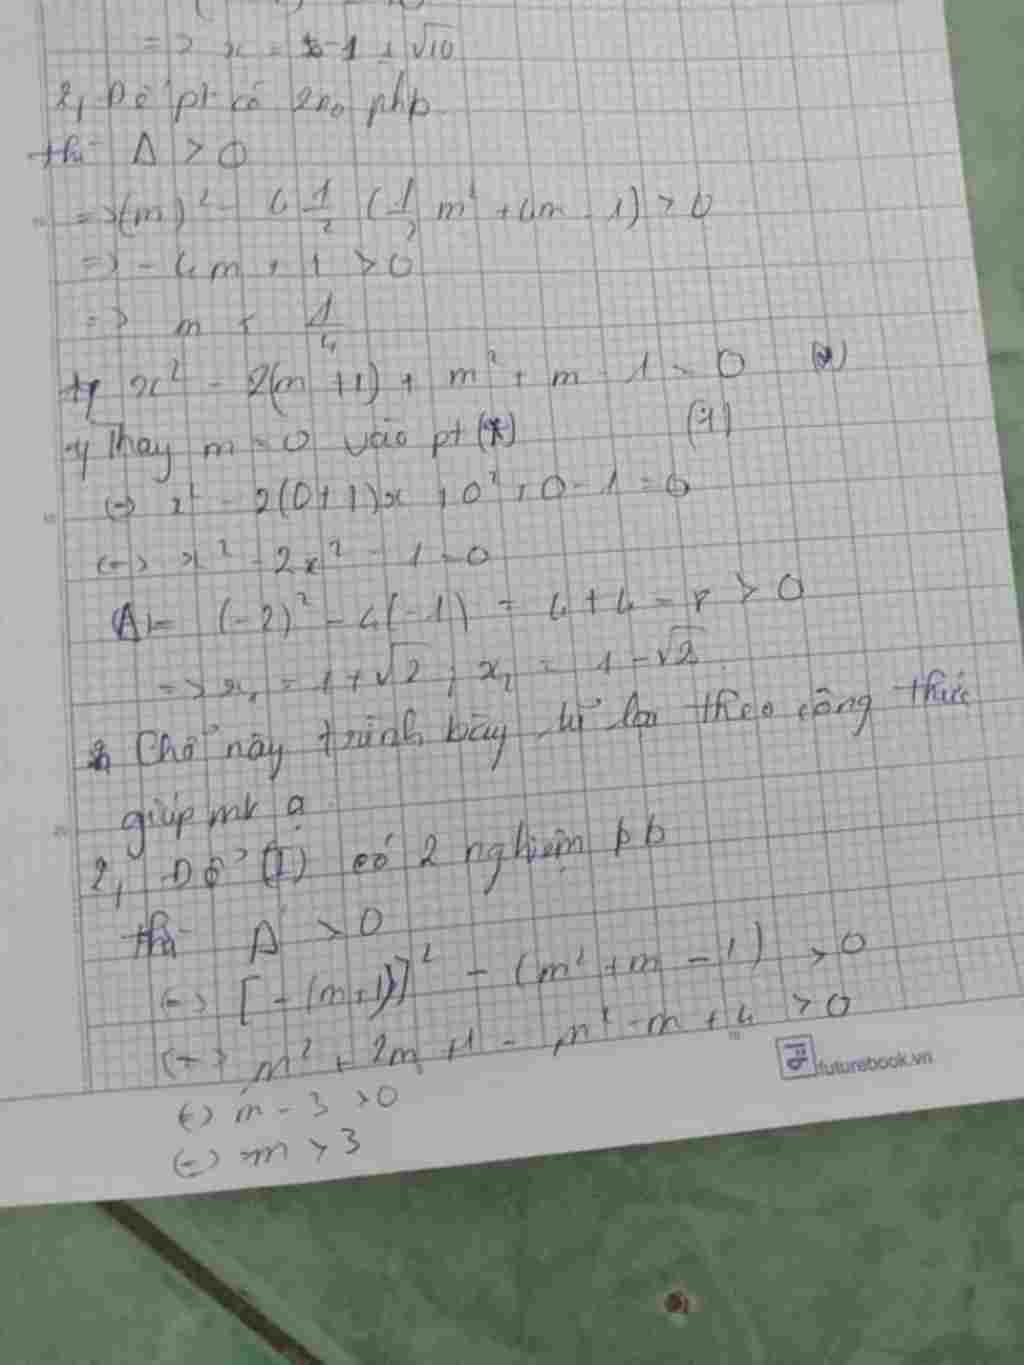 => x = -1 ± √10
2, Để pt có 2no phb
thì Δ > 0
=> (m)² - 4 1/2 (1/2 m² + 4m - 1) > 0
=> - 4m + 1 > 0
=> m < 1/4
x² - 2(m + 1) + m² + m - 1 = 0 (*)
Thay m = 0 vào pt (*) (1)
(=) x² - 2(0 + 1)x + 0² + 0 - 1 = 0
(=> x² - 2x² - 1 = 0
Δ = (-2)² - 4(-1) = 4 + 4 = 8 > 0
=> x₁ = 1 + √2 ; x₂ = 1 - √2
Chỗ này trình bày lại theo công thức
giúp mk ạ
2, Để (1) có 2 nghiệm pb
thì Δ' > 0
(=> [- (m + 1)]² - (m² + m - 1) > 0
(=> m² + 2m + 1 - m² - m + 4 > 0
futurebook.vn
(=) m - 3 > 0
(=) m > 3